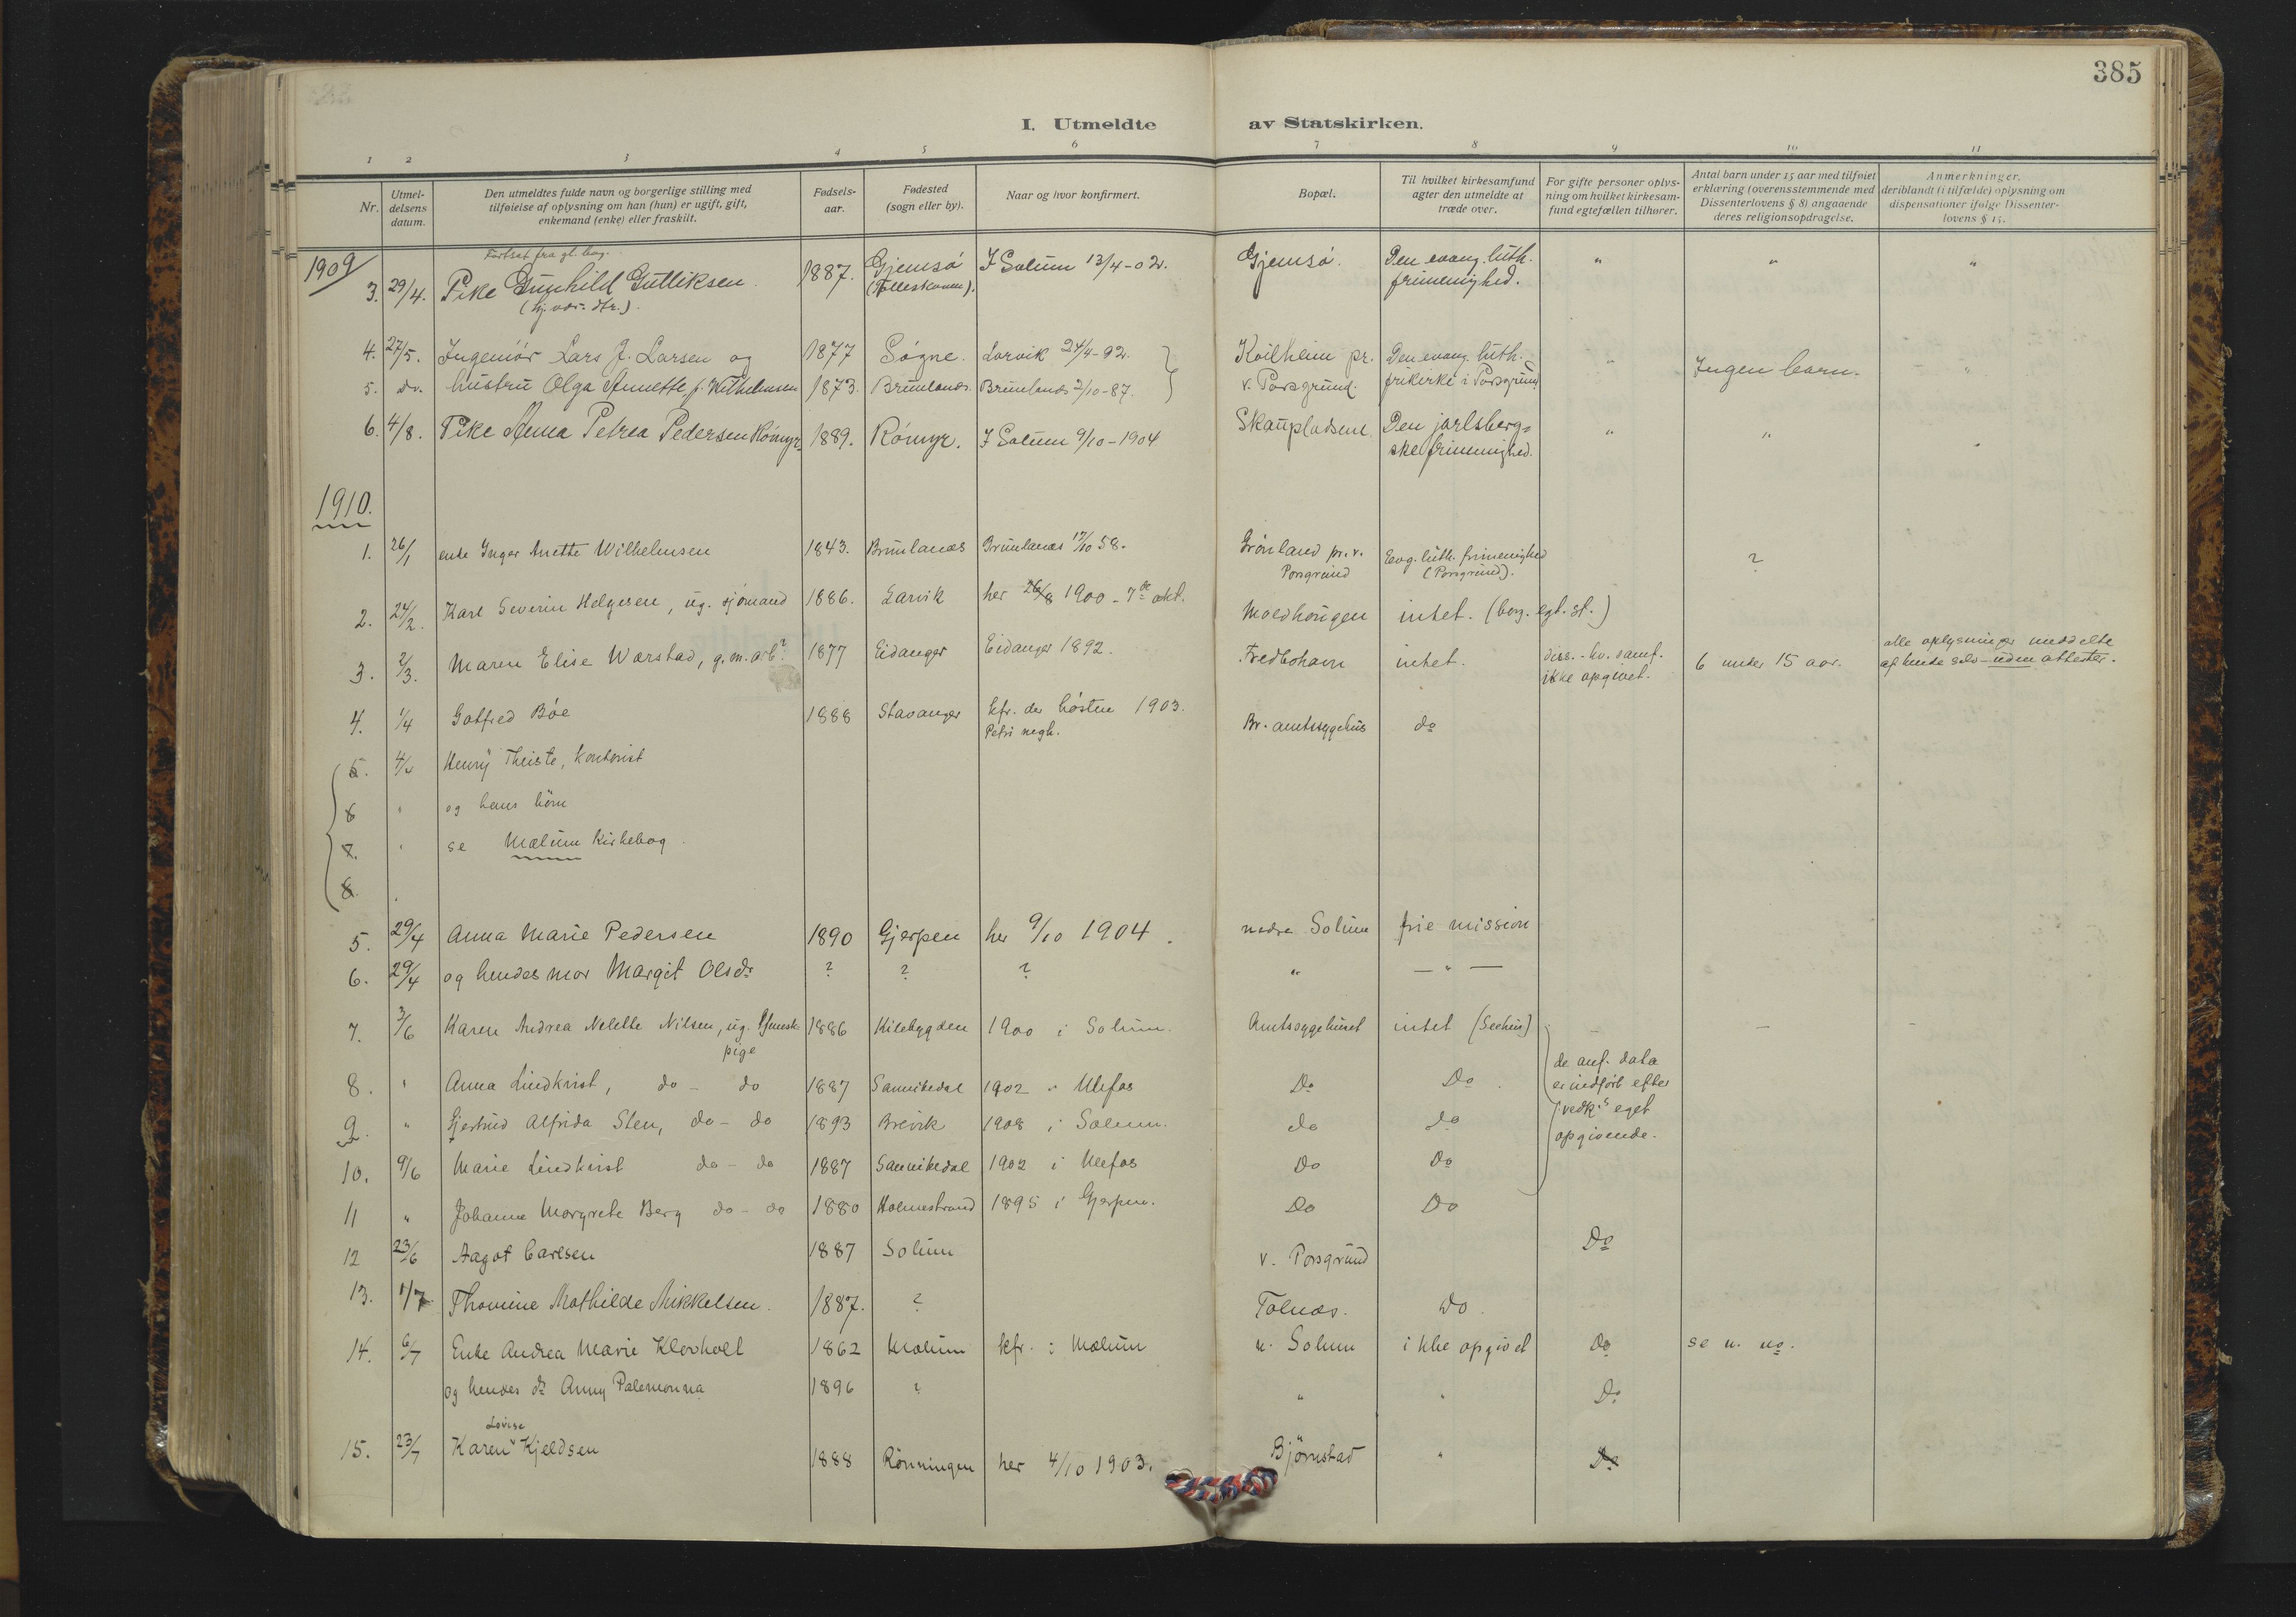 385
I. Utmeldte av Statskirken.
1 2 3 4 5 6 7 8 9 10 11
Nr.
Utmel-
delsens
datum.
Den utmeldtes fulde navn og borgerlige stilling med
tilføielse af oplysning om han (hun) er ugift, gift,
enkemand (enke) eller fraskilt.
Fødsels-
aar.
Fødested
(sogn eller by).
Naar og hvor konfirmert.
Bopæl.
Til hvilket kirkesamfund
agter den utmeldte at
træde over.
For gifte personer oplys-
ning om hvilket kirkesam-
fund egtefællen tilhører.
Antal barn under 15 aar med tilføiet
erklæring (overensstemmende med
Dissenterlovens § 8) angaaende
deres religionsopdragelse.
Anmerkninger,
deriblandt (i tilfælde) oplysning om
dispensationer ifølge Dissenter-
lovens § 15.
1909
Fortsat fra gl. bog.
3. 29/4. Pike Gunhild Gulliksen 1887. Gjemsø I Solum 13/4-02. Gjemsø. Den evang. luth. " " "
frimenighed.
4. 27/5. Ingeniör Lars J. Larsen og 1877 Søgne. Larvik 24/4-92. pr. Den evang. luth. " Ingen barn. "
5. do. hustru Olga Annette f. Wilhelmsen 1873. Brunlanæs. Brunlanæs 2/10-87. v. Porsgrund. frikirke i Porsgrund
6. 4/8. Pike Anna Petrea Pedersen Römyr 1889. Römyr. I Solum 9/10-1904 Den jarlsberg- " " "
ske frimenighed.
1910.
1. 26/1 enke Inger Anette Wilhelmsen 1843. Brunlanæs Brunlanæs 58. Grönland pr. v. Evg. luth. frimenighed ?
Porsgrund (Porsgrund).
2. 24/2. Karl Severin Helgesen, ug. sjömand 1886. Larvik her 1900 - 7de okt. Moldhougen intet. (borg. egt. st.)
3. 2/3. Maren Elise Wærstad, g. m. arb. 1877 Eidanger Eidanger 1892. Fredbohavn intet. diss. - hv. samf. 6 under 15 aar. alle oplysninger meddelte
ikke opgivet. af hende selv - uden attester.
4. 1/4 Gotfred Böe 1888 Stavanger kfr. der høsten 1903. Br. amtssygehus do
Petri megh.
5. 4/4 Henry Theiste, kontorist
6 " og hans börn
7. " se Mælum Kirkebog.
8.
5. 29/4 Anna Marie Pedersen 1890 Gjerpen her 9/10 1904. nedre Solum frie mission
6. 29/4 og hendes mor Margit Olsdr ? ? ? " — " —
7. 3/6 Karen Andrea Nelette Nilsen, ug. tjeneste 1886 Kilebygden 1900 i Solum. Amtssygehuset intet - - -
pige
de anf. data
8. " Anna Lindkvist, do - do 1887 Sannikedal 1902 " Ulefos Do Do. er indført efter
9. " Gjertrud Alfrida Sten, do - do 1893 Brevik 1908 i Solum. do do vedk.s eget
opgivende.
10. 9/6 Marie Lindkvist do - do 1887 Sannikedal 1902 i Ulefos Do Do
11 " Johanne Margrete Berg do - do 1880 Holmestrand 1895 i Gjerpen. Do Do
12 23/6 Aagot Carlsen 1887 Solum v. Porsgrund Do
13. 1/7 Thomine Mathilde Mikkelsen. 1887. ? Tolnæs. Do.
14. 6/7 Enke Andrea Marie Klovholt 1862 Mælum kfr. i Mælum n. Solum ikke opgivet Do se u. no.
og hendes dr. Anny Palemonna 1896 ? " " Do
Lovise
15. 23/7 Karen Kjeldsen 1888 Rönningen her 4/10 1903. Björnstad " Do